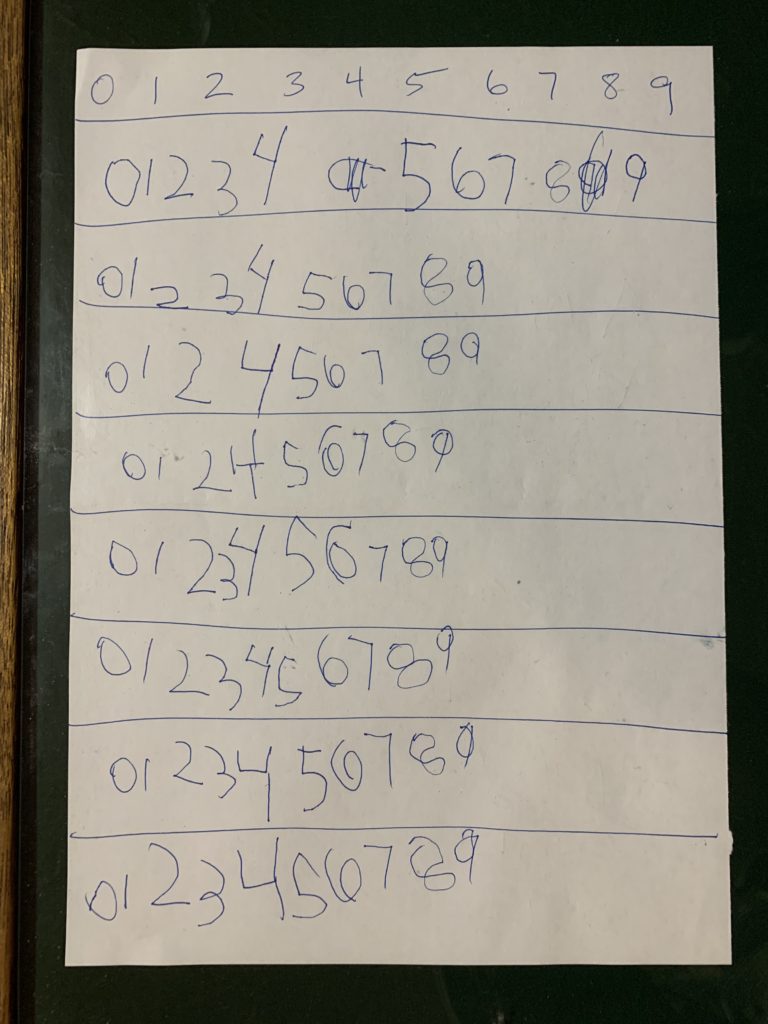 0 1 2 3 4 5 6 7 8 9
0 1 2 3 4 5 6 7 8 9
0 1 2 3 4 5 6 7 8 9
0 1 2 4 5 6 7 8 9
0 1 2 4 5 6 7 8 9
0 1 2 3 4 5 6 7 8 9
0 1 2 3 4 5 6 7 8 9
0 1 2 3 4 5 6 7 8 9
0 1 2 3 4 5 6 7 8 9